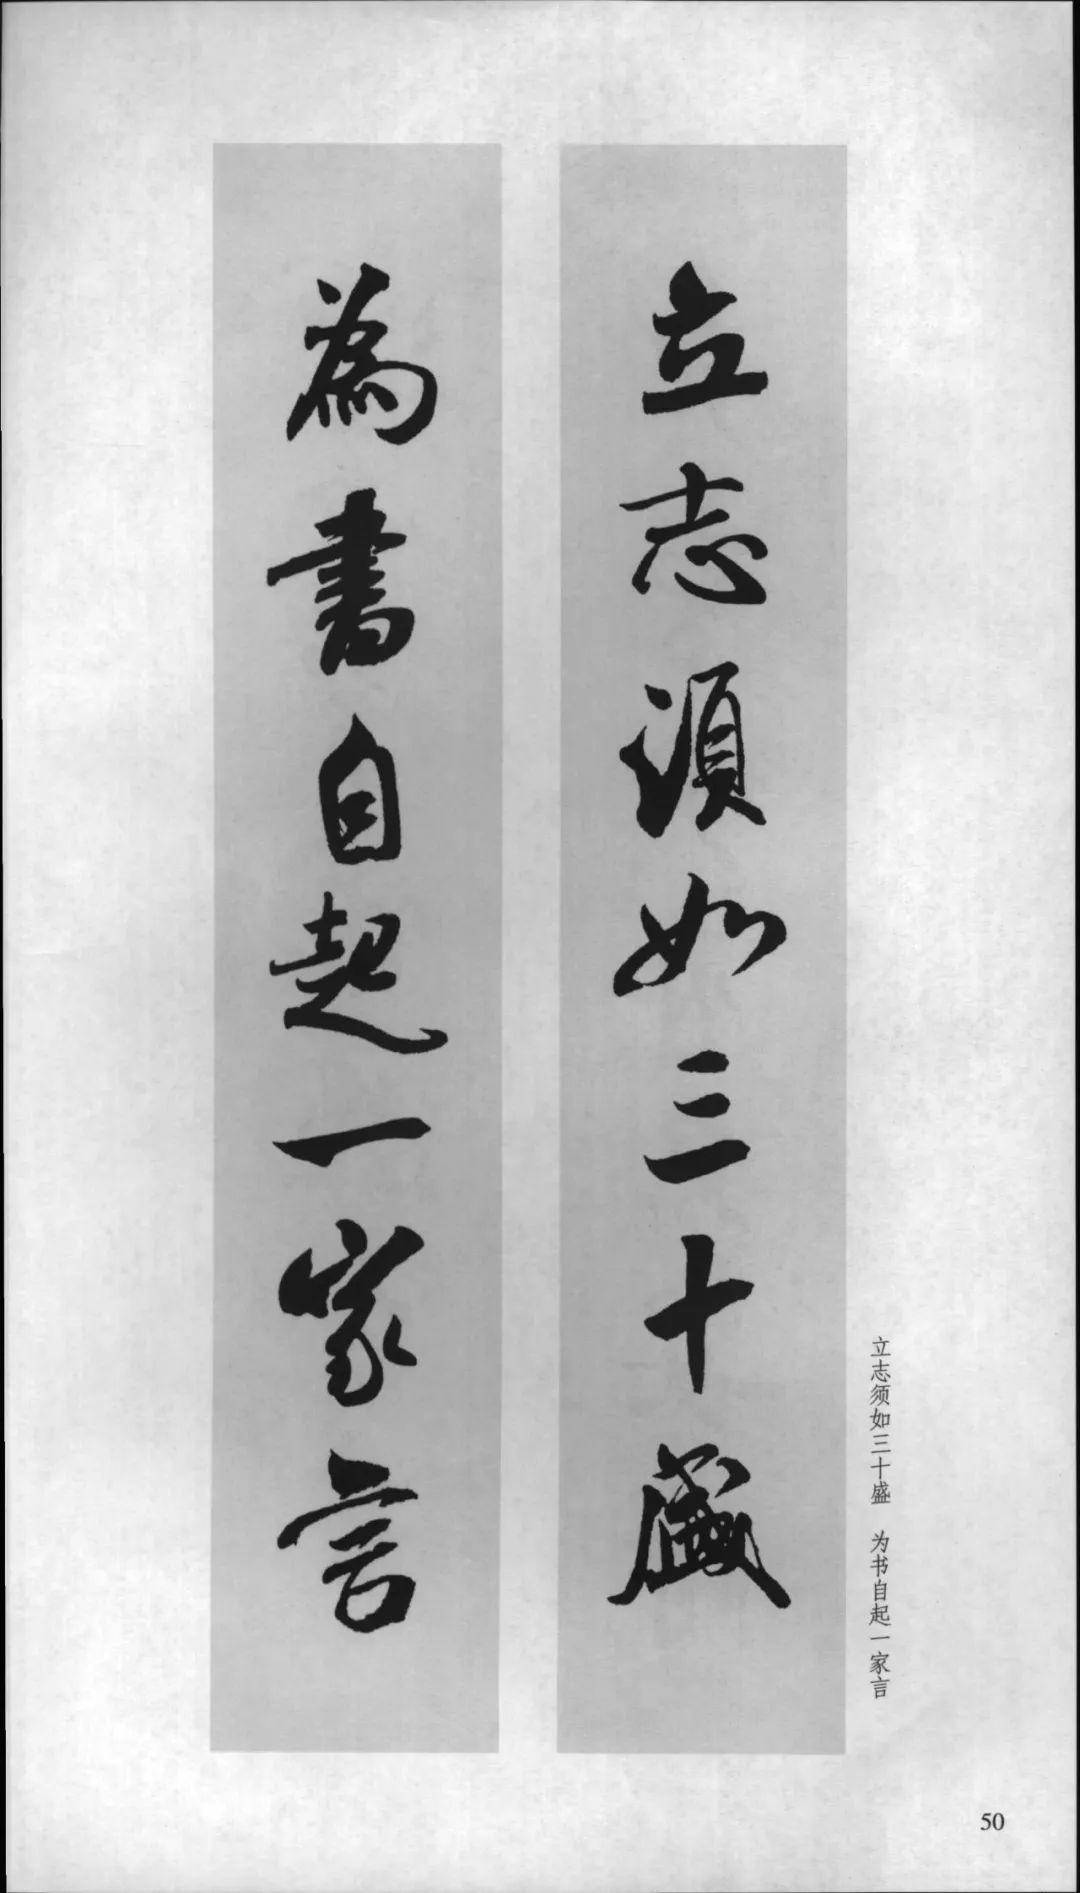 立志須如三十盛
為書自起一家言
立志须如三十盛 为书自起一家言
50